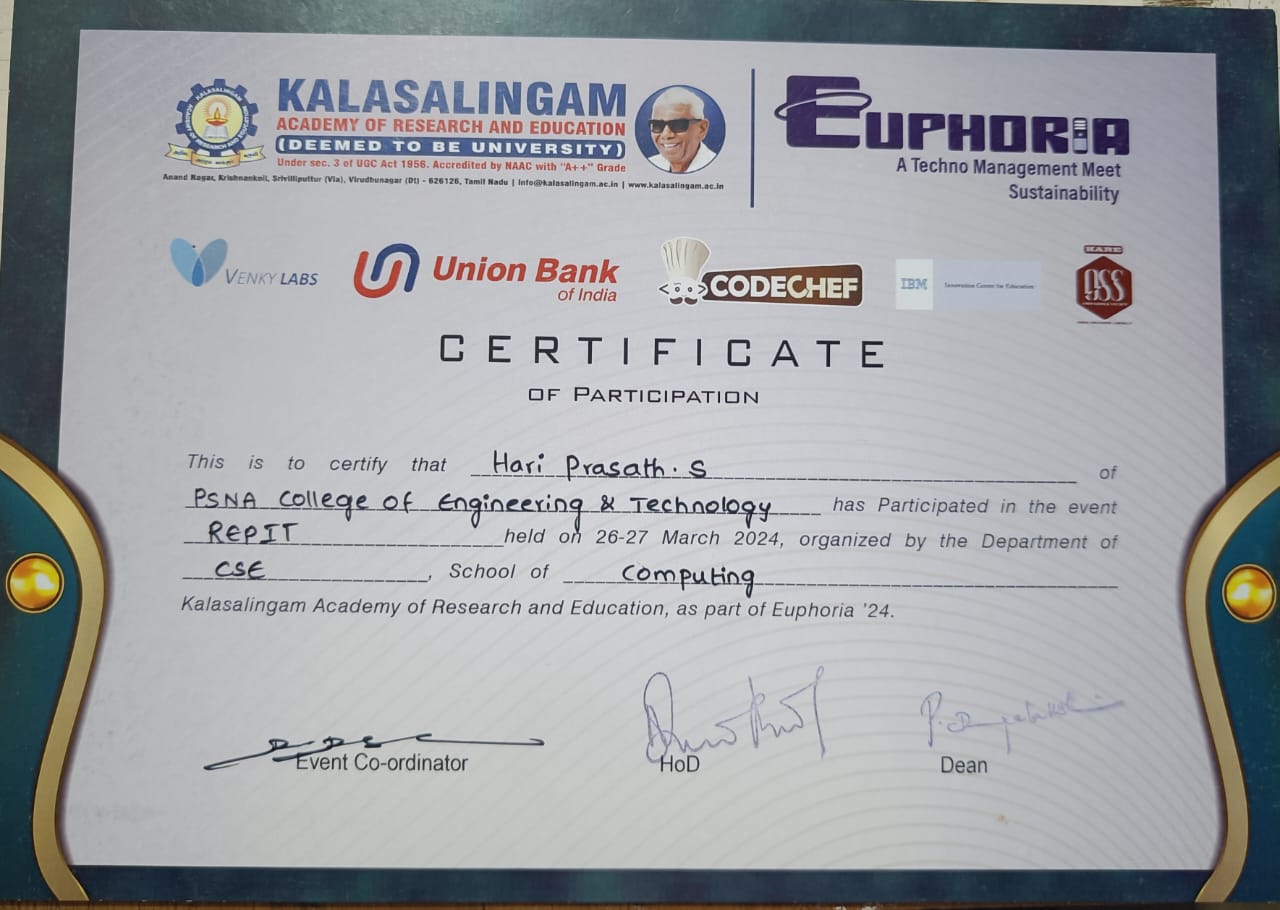 KALASALINGAM
ACADEMY OF RESEARCH AND EDUCATION
(DEEMED TO BE UNIVERSITY)
Under sec. 3 of UGC Act 1956. Accredited by NAAC with "A++" Grade
Anand Nagar, Krishnankoil, Srivilliputtur (Via), Virudhunagar (Dt) - 626126, Tamil Nadu | info@kalasalingam.ac.in | www.kalasalingam.ac.in
EUPHORIA
A Techno Management Meet
Sustainability
VENKY LABS
Union Bank
of India
CODECHEF
IBM Innovation Centre for Education
KARE
OSS
CERTIFICATE
OF PARTICIPATION
This is to certify that Hari Prasath. S of
PSNA College of Engineering & Technology has Participated in the event
REPIT held on 26-27 March 2024, organized by the Department of
CSE, School of Computing
Kalasalingam Academy of Research and Education, as part of Euphoria '24.
Event Co-ordinator
HoD
Dean